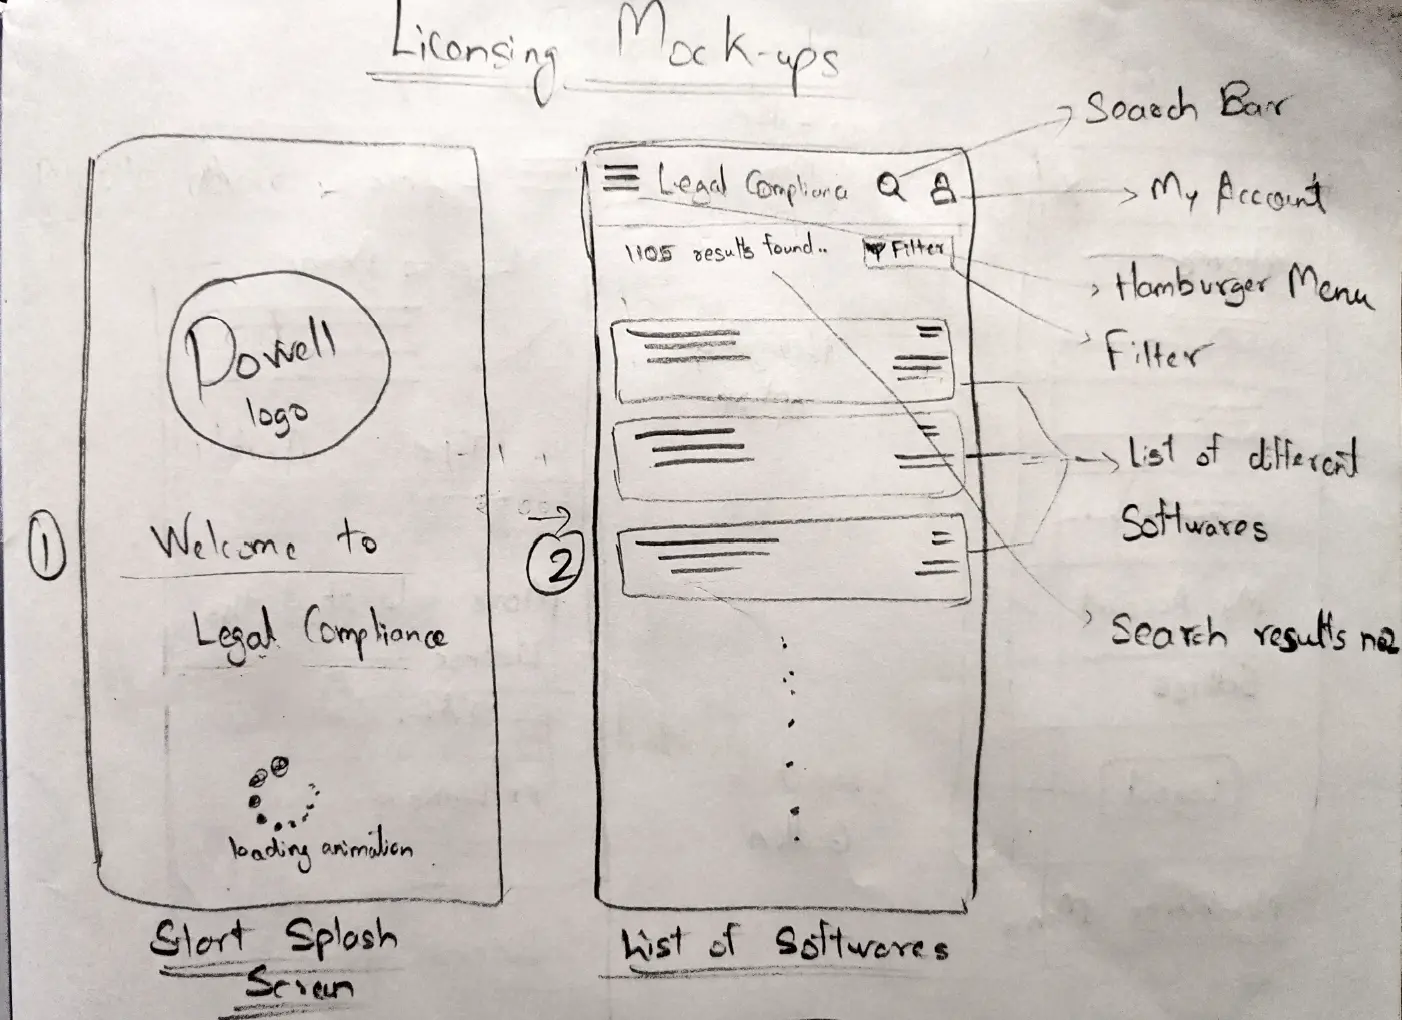 Licensing Mock-ups
Dowell
logo
1
Welcome to
Legal Compliance
loading animation
Start Splash
Screen
2
Legal Compliance
1105 results found..
Filter
List of Softwares
Search Bar
My Account
Hamburger Menu
Filter
List of different
Softwares
Search results no